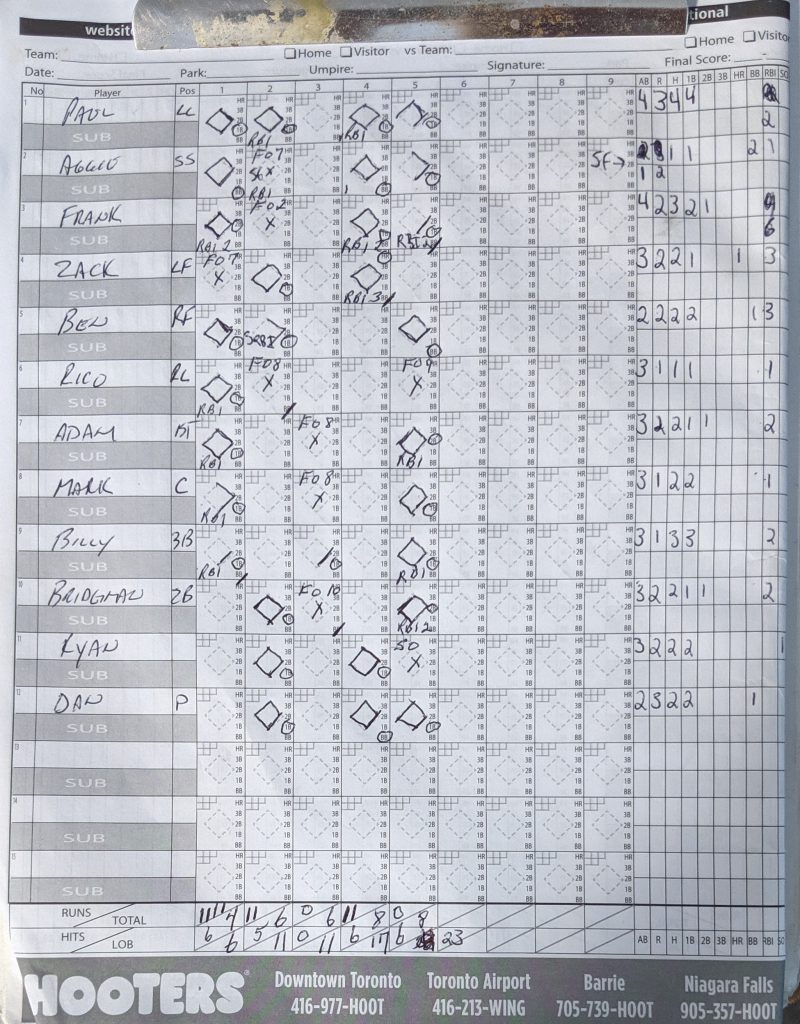 website
tional
Team: Home Visitor vs Team: Home Visito
Date: Park: Umpire: Signature: Final Score:
No Player Pos 1 2 3 4 5 6 7 8 9 AB R H 1B 2B 3B HR BB RBI SO
1 PAUL LC RBI RBI 4 3 4 4 2
SUB
2 AGGIE SS FO7 RBI SF→ 1 1 2 1
SUB 1 2
3 FRANK FO2 RBI 2 RBI 2 RBI 2 4 2 3 2 1 6
SUB
4 ZACK LF FO7 RBI 3 3 2 2 1 1 3
SUB
5 BEN RF 2 2 2 2 1 3
SUB
6 RICO RC RBI FO8 FO9 3 1 1 1 1
SUB
7 ADAM RBI FO8 RBI 3 2 2 1 1 2
SUB
8 MARK C RBI FO8 3 1 2 2 1
SUB
9 BILLY 3B RBI RBI 3 1 3 3 2
SUB
10 BRIDGMAN 2B RBI 2 3 2 2 1 1 2
SUB
11 RYAN SO 3 2 2 2 1
SUB
12 DAN P 2 3 2 2 1
SUB
13
SUB
14
SUB
15
SUB
RUNS TOTAL 4 6 0 6 8 0 8
HITS LOB 6 6 5 11 0 11 6 17 6 23 AB R H 1B 2B 3B HR BB RBI SO
HOOTERS Downtown Toronto Toronto Airport Barrie Niagara Falls
416-977-HOOT 416-213-WING 705-739-HOOT 905-357-HOOT